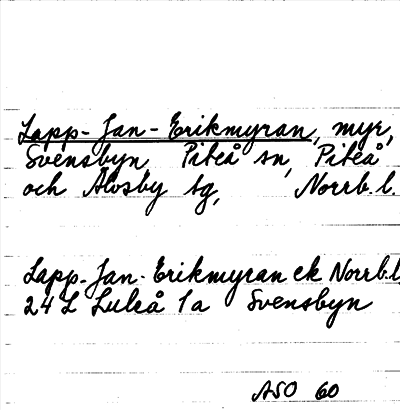 Lapp-Jan-Erikmyran, myr,
Svensbyn Piteå sn, Piteå
och Älvsby tg, Norrb.l.
Lapp-Jan-Erikmyran ek Norrb.l.
24 L Luleå 1a Svensbyn
ASO 60